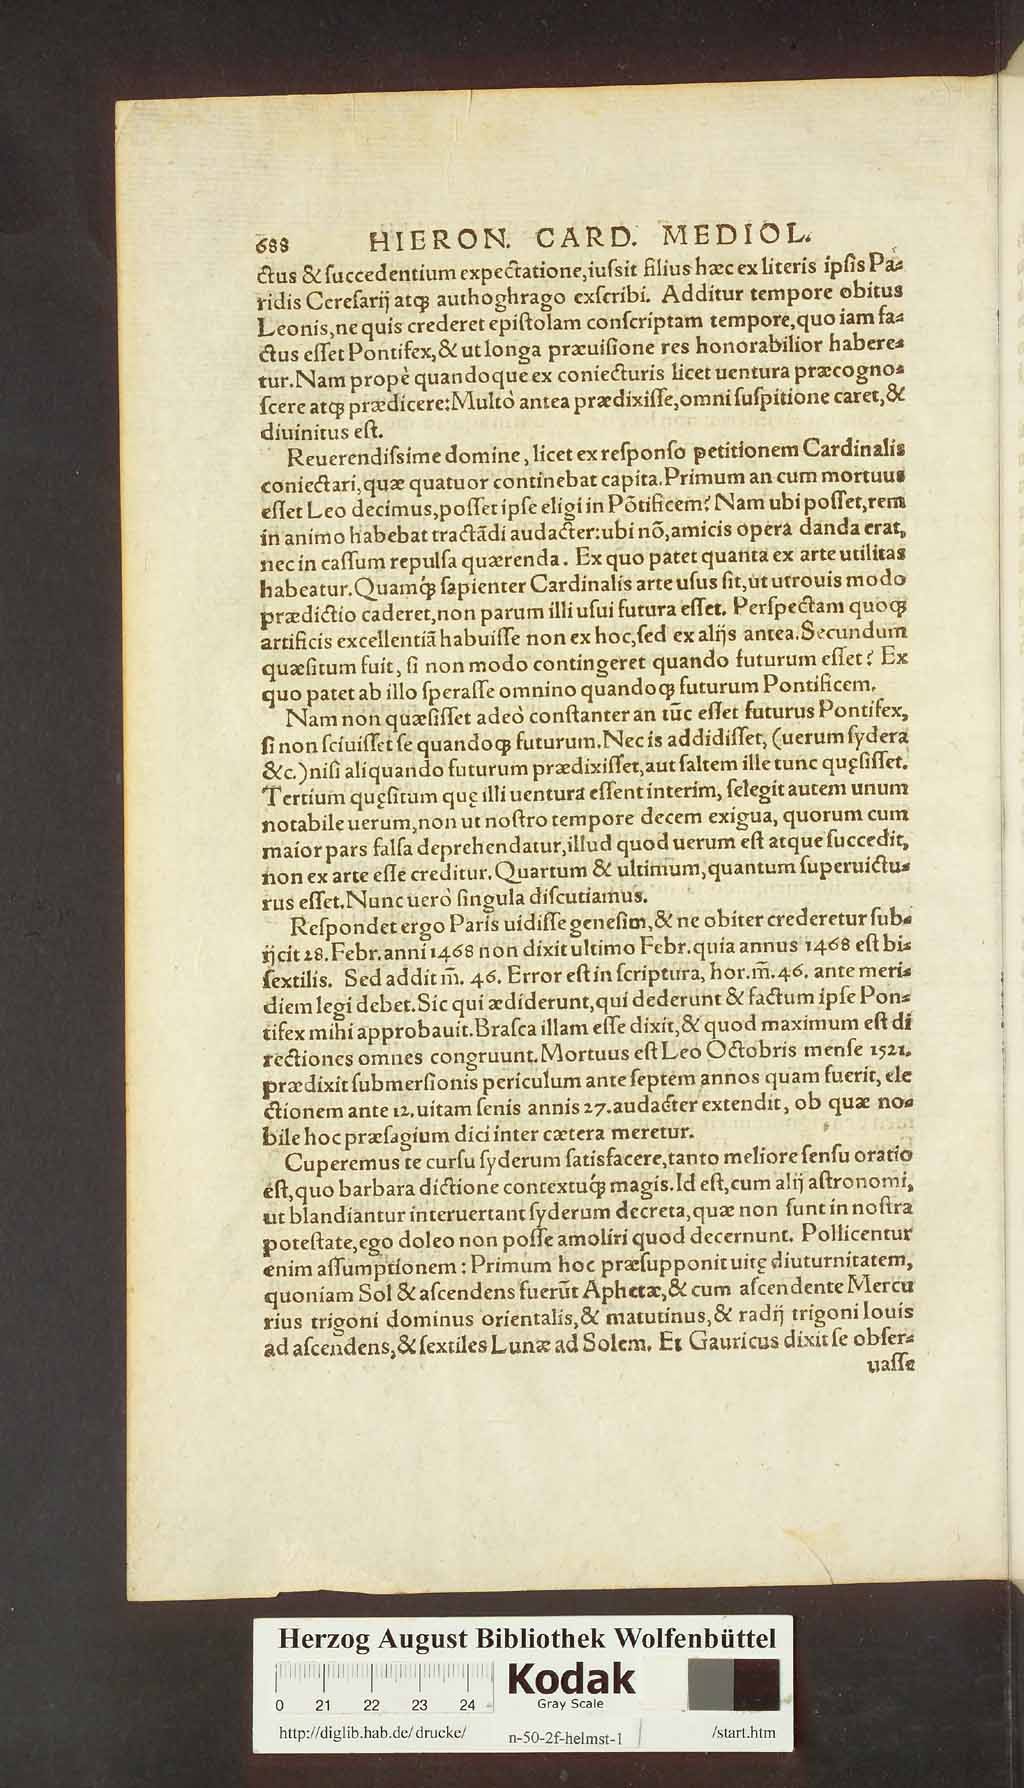 688 HIERON. CARD. MEDIOL.
ctus & ſuccedentium expectatione, iuſsit filius hæc ex literis ipſis Pa-
ridis Cereſarij atq́ authoghrago exſcribi. Additur tempore obitus
Leonis, ne quis crederet epiſtolam conſcriptam tempore, quo iam fa-
ctus eſſet Pontifex, & ut longa præuiſione res honorabilior habere-
tur. Nam propè quandoque ex coniecturis licet uentura præcogno-
ſcere atq́ prædicere: Multò antea prædixiſſe, omni ſuſpitione caret, &
diuinitus eſt.
Reuerendiſsime domine, licet ex reſponſo petitionem Cardinalis
coniectari, quæ quatuor continebat capita. Primum an cum mortuus
eſſet Leo decimus, poſſet ipſe eligi in Põtificem? Nam ubi poſſet, rem
in animo habebat tractãdi audacter: ubi nõ, amicis opera danda erat,
nec in caſſum repulſa quærenda. Ex quo patet quanta ex arte utilitas
habeatur. Quamq́ ſapienter Cardinalis arte uſus ſit, ut utrouis modo
prædictio caderet, non parum illi uſui futura eſſet. Perſpectam quoq́
artificis excellentiã habuiſſe non ex hoc, ſed ex alijs antea. Secundum
quæſitum fuit, ſi non modo contingeret quando futurum eſſet? Ex
quo patet ab illo ſperaſſe omnino quandoq́ futurum Pontificem.
Nam non quæſiſſet adeò conſtanter an tũc eſſet futurus Pontifex,
ſi non ſciuiſſet ſe quandoq́ futurum. Nec is addidiſſet, (uerum ſydera
&c.) niſi aliquando futurum prædixiſſet, aut ſaltem ille tunc quęſiſſet.
Tertium quęſitum quę illi uentura eſſent interim, ſelegit autem unum
notabile uerum, non ut noſtro tempore decem exigua, quorum cum
maior pars falſa deprehendatur, illud quod uerum eſt atque ſuccedit,
non ex arte eſſe creditur. Quartum & ultimum, quantum ſuperuictu-
rus eſſet. Nunc uerò ſingula diſcutiamus.
Reſpondet ergo Paris uidiſſe geneſim, & ne obiter crederetur ſub-
ijcit 28. Febr. anni 1468 non dixit ultimo Febr. quia annus 1468 eſt bi-
ſextilis. Sed addit m̃. 46. Error eſt in ſcriptura, hor. m̃. 46. ante meri-
diem legi debet. Sic qui ædiderunt, qui dederunt & factum ipſe Pon-
tifex mihi approbauit. Braſca illam eſſe dixit, & quod maximum eſt di
rectiones omnes congruunt. Mortuus eſt Leo Octobris menſe 1521.
prædixit ſubmerſionis periculum ante ſeptem annos quam fuerit, ele
ctionem ante 12. uitam ſenis annis 27. audacter extendit, ob quæ no-
bile hoc præſagium dici inter cætera meretur.
Cuperemus te curſu ſyderum ſatisfacere, tanto meliore ſenſu oratio
eſt, quo barbara dictione contextuq́ magis. Id eſt, cum alij aſtronomi,
ut blandiantur interuertant ſyderum decreta, quæ non ſunt in noſtra
poteſtate, ego doleo non poſſe amoliri quod decernunt. Pollicentur
enim aſſumptionem: Primum hoc præſupponit uitę diuturnitatem,
quoniam Sol & aſcendens fuerũt Aphetæ, & cum aſcendente Mercu
rius trigoni dominus orientalis, & matutinus, & radij trigoni Iouis
ad aſcendens, & ſextiles Lunæ ad Solem. Et Gauricus dixit ſe obſer-
uaſſe
Herzog August Bibliothek Wolfenbüttel
0 21 22 23 24
Kodak
Gray Scale
http://diglib.hab.de/drucke/ n-50-2f-helmst-1 /start.htm